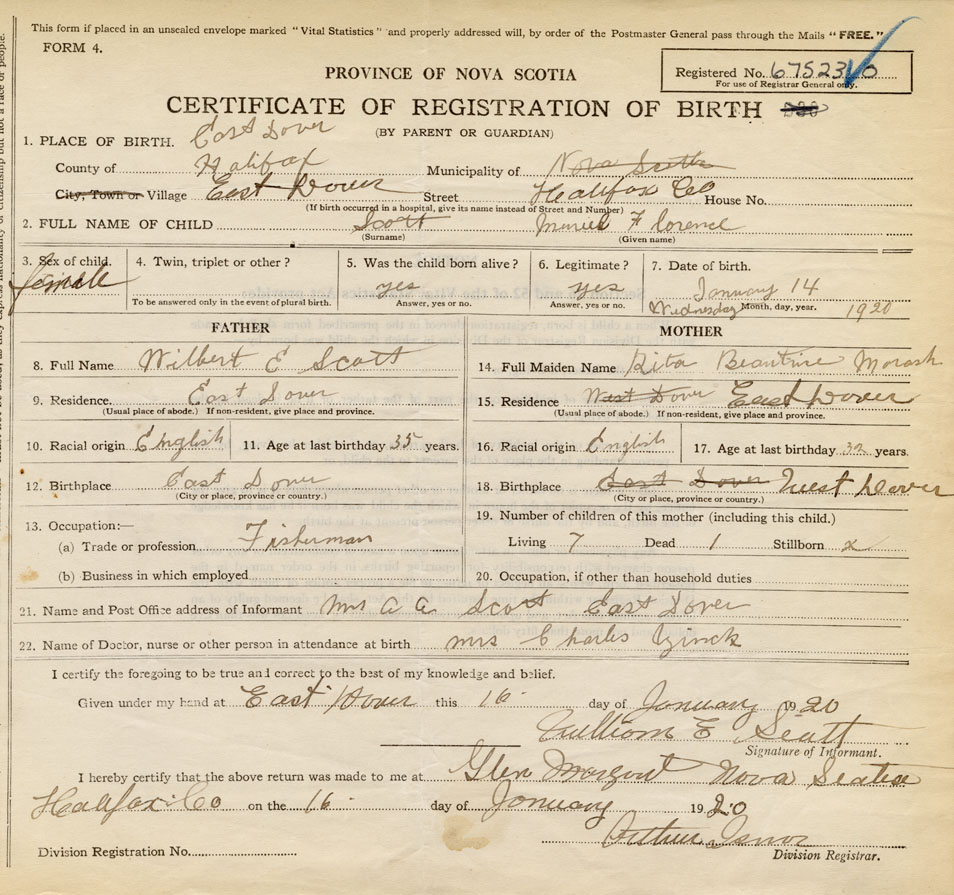 This form if placed in an unsealed envelope marked "Vital Statistics" and properly addressed will, by order of the Postmaster General pass through the Mails "FREE."
FORM 4.
Registered No. 67523
For use of Registrar General only.
PROVINCE OF NOVA SCOTIA
CERTIFICATE OF REGISTRATION OF BIRTH
(BY PARENT OR GUARDIAN)
1. PLACE OF BIRTH. East Dover
County of Halifax Municipality of Nova Scotia
City, Town or Village East Dover Street Halifax Co House No.
(If birth occurred in a hospital, give its name instead of Street and Number)
2. FULL NAME OF CHILD Scott Muriel Florence
(Surname) (Given name)
3. Sex of child. female
4. Twin, triplet or other?
To be answered only in the event of plural birth.
5. Was the child born alive? yes
Answer, yes or no.
6. Legitimate? yes
Answer, yes or no.
7. Date of birth. January 14
Wednesday Month, day, year. 1920
FATHER
8. Full Name Wilbert E Scott
9. Residence. East Dover
(Usual place of abode.) If non-resident, give place and province.
10. Racial origin English 11. Age at last birthday 35 years.
12. Birthplace East Dover
(City or place, province or country.)
13. Occupation:—
(a) Trade or profession Fisherman
(b) Business in which employed
MOTHER
14. Full Maiden Name Rita Beautrice Morash
15. Residence West Dover East Dover
(Usual place of abode.) If non-resident, give place and province.
16. Racial origin English 17. Age at last birthday 32 years.
18. Birthplace East Dover West Dover
(City or place, province or country.)
19. Number of children of this mother (including this child.)
Living 7 Dead 1 Stillborn x
20. Occupation, if other than household duties
21. Name and Post Office address of Informant Mrs A A Scott East Dover
22. Name of Doctor, nurse or other person in attendance at birth mrs Charles Zinck
I certify the foregoing to be true and correct to the best of my knowledge and belief.
Given under my hand at East Dover this 16 day of January 1920
William E Scott
Signature of Informant.
I hereby certify that the above return was made to me at Glen Margaret Nova Scotia
Halifax Co on the 16 day of January 1920
Arthur
Division Registration No. Division Registrar.